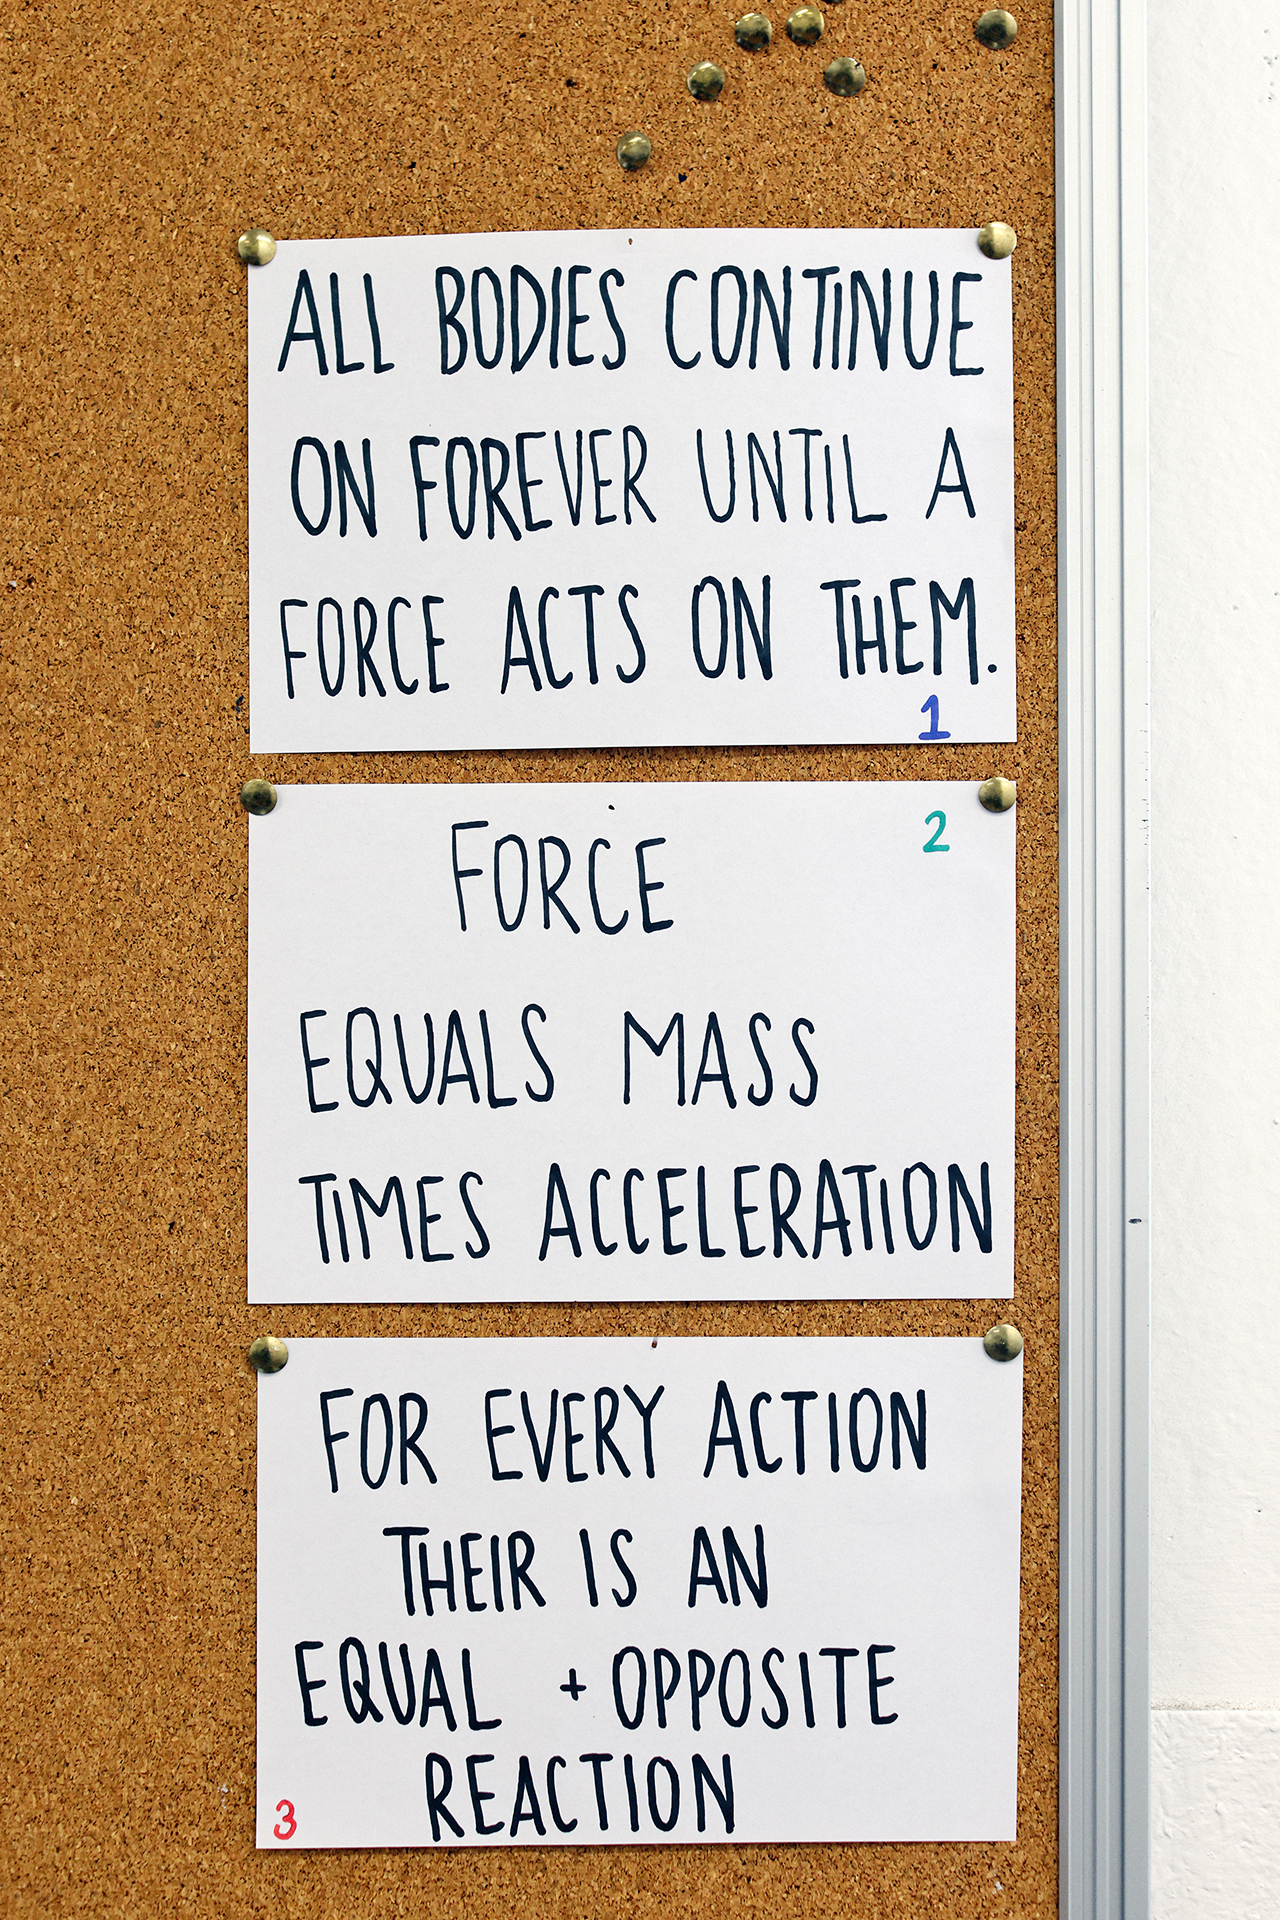 ALL BODIES CONTINUE
ON FOREVER UNTIL A
FORCE ACTS ON THEM.
1
2
FORCE
EQUALS MASS
TIMES ACCELERATION
FOR EVERY ACTION
THEIR IS AN
EQUAL + OPPOSITE
REACTION
3